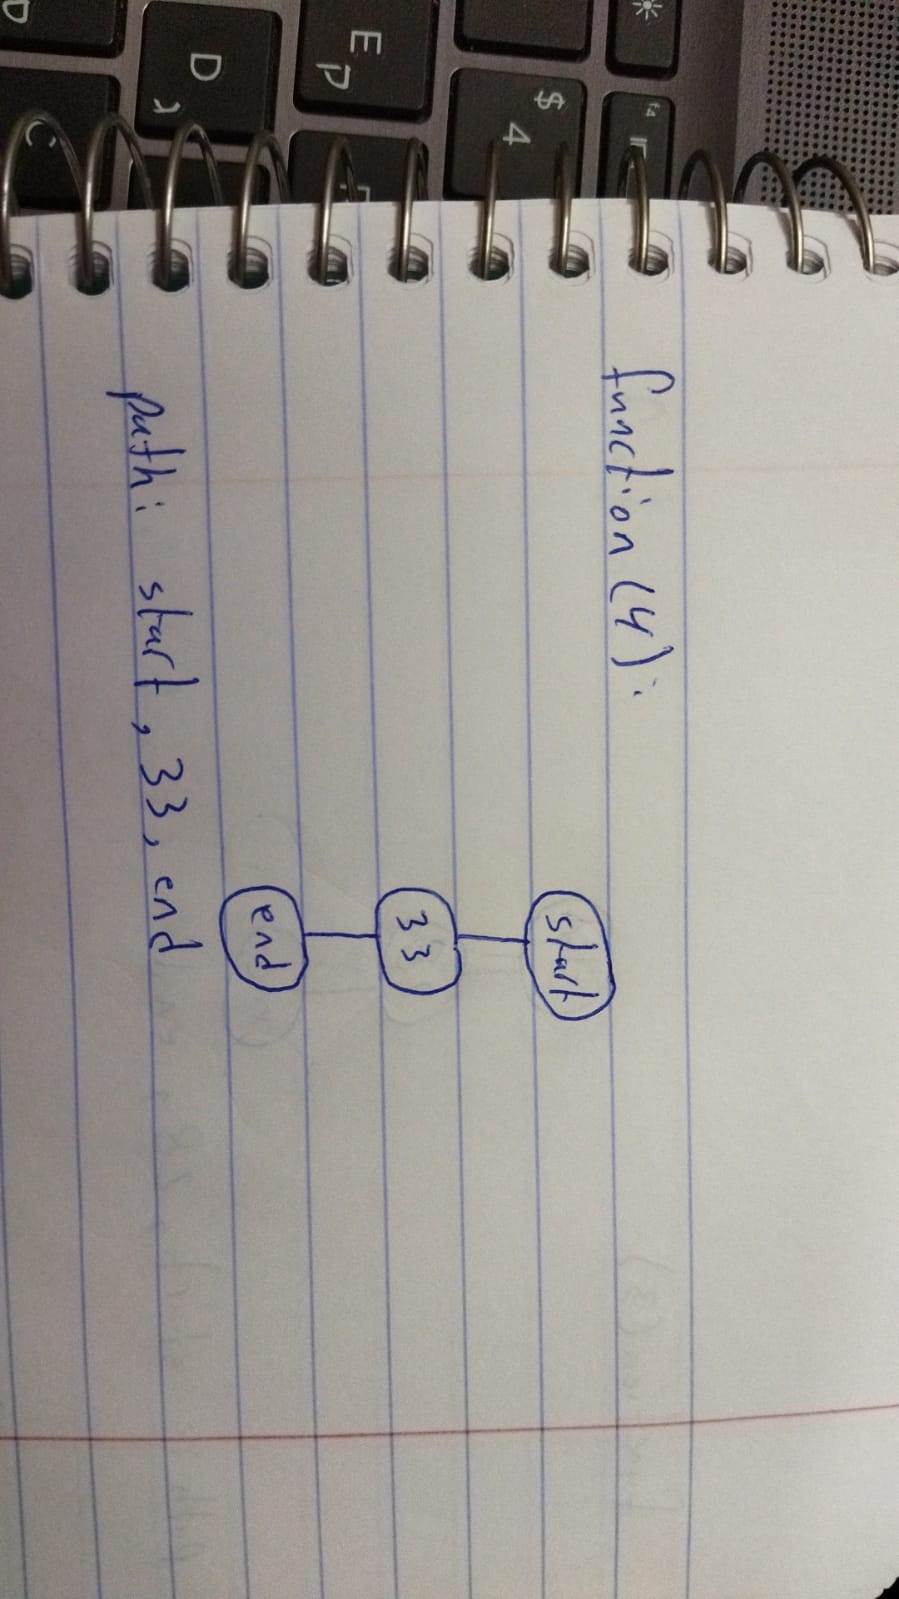 function(4):
start
33
end
path: start, 33, end
E
D
$
4
C